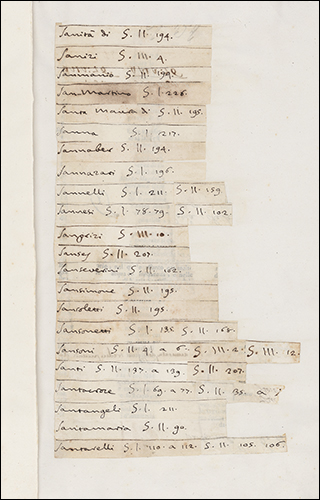 Sanità di S. II. 194.
Sanizi S. III. 4.
Sannanio S. II. 194
San Martino S. I. 226.
Santa Maura di S. II. 195.
Sanna S. I. 217.
Sannaber S. II. 194.
Sannazari S. I. 196.
Sannelli S. I. 211. S. II. 159.
Sannesi S. I. 78.79. S. II. 102.
Sangrizi S. III. 10.
Sansey S. II. 207.
Sanseverini S. II. 162.
Sansimone S. II. 195.
Sansoletti S. II. 195.
Sansonetti S. I. 135. S. II. 168.
Sansoni S. II. 4. a 6. S. III. 2. S. III. 12.
Santi S. II. 137. a 139. S. II. 207.
Santacroce S. I. 69. a 77. S. II. 135. a
Santangeli S. I. 211.
Santamaria S. II. 90.
Santarelli S. I. 110. a 112. S. II. 105. 106.